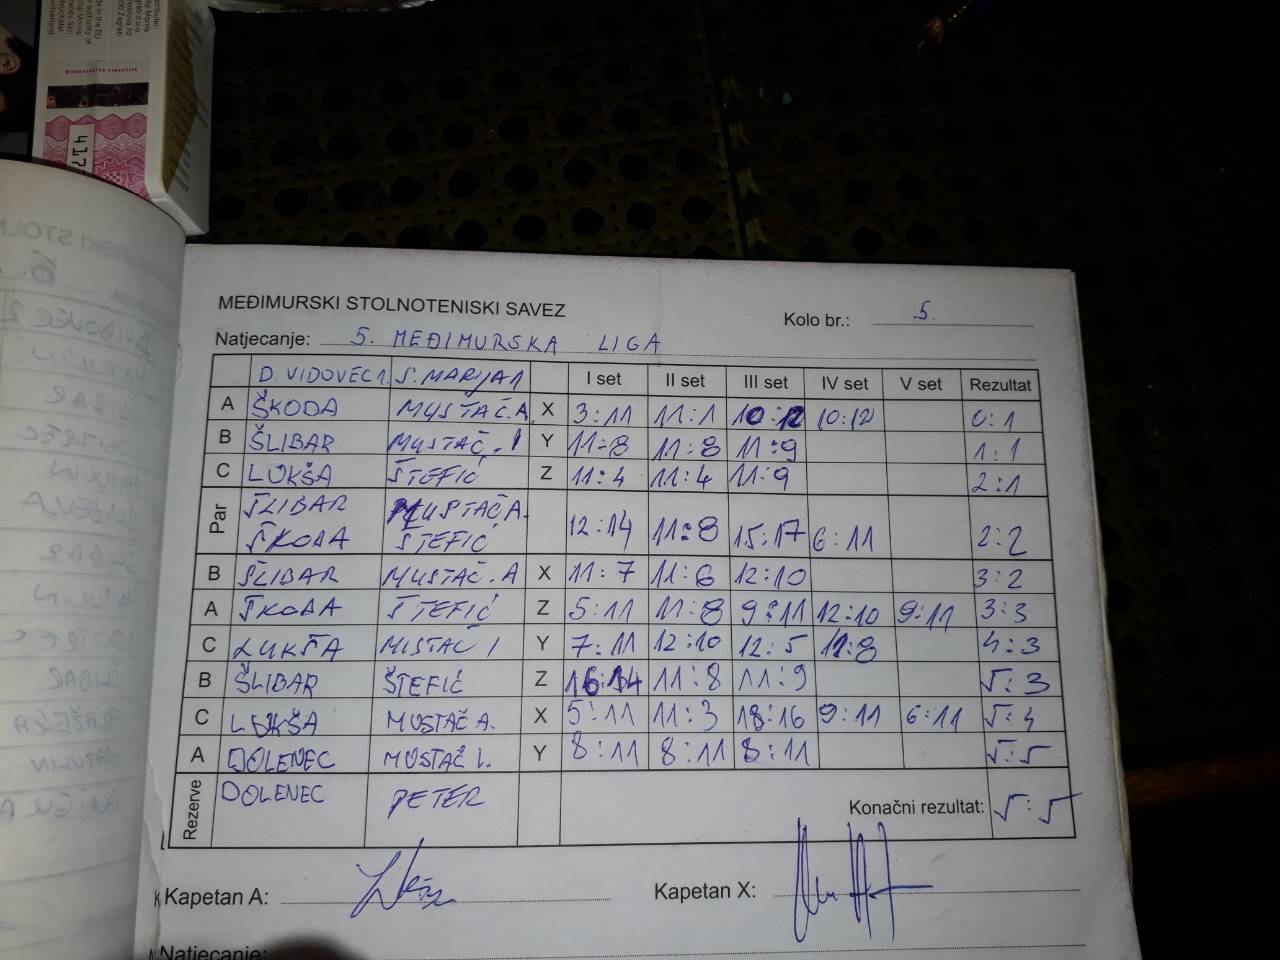 MINISTARSTVO FINANCIJA
417
MEĐIMURSKI STOLNOTENISKI SAVEZ
Kolo br.: 5.
Natjecanje: 5. MEĐIMURSKA LIGA
D. VIDOVEC 1. S. MARIJA 1 I set II set III set IV set V set Rezultat
A ŠKODA MUSTAČ.A X 3:11 11:1 10:12 10:12 0:1
B ŠLIBAR MUSTAČ. I Y 11:8 11:8 11:9 1:1
C LUKŠA ŠTEFIĆ Z 11:4 11:4 11:9 2:1
Par ŠLIBAR MUSTAČ A.
ŠKODA ŠTEFIĆ 12:14 11:8 15:17 6:11 2:2
B ŠLIBAR MUSTAČ.A X 11:7 11:6 12:10 3:2
A ŠKODA ŠTEFIĆ Z 5:11 11:8 9:11 12:10 9:11 3:3
C LUKŠA MISTAČ I Y 7:11 12:10 12:5 11:8 4:3
B ŠLIBAR ŠTEFIĆ Z 16:14 11:8 11:9 5:3
C LUKŠA MUSTAČ A. X 5:11 11:3 18:16 9:11 6:11 5:4
A DOLENEC MUSTAČ I. Y 8:11 8:11 8:11 5:5
Rezerve DOLENEC PETER Konačni rezultat: 5:5
Kapetan A: Kapetan X:
Natjecanje: